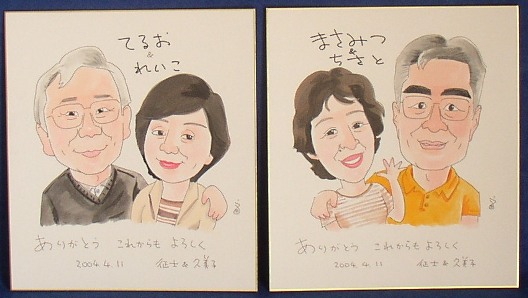 てるお
&
れいこ
ありがとう これからも よろしく
2004.4.11 征士&久美子
まさみつ
&
ちさと
ありがとう これからも よろしく
2004.4.11 征士&久美子